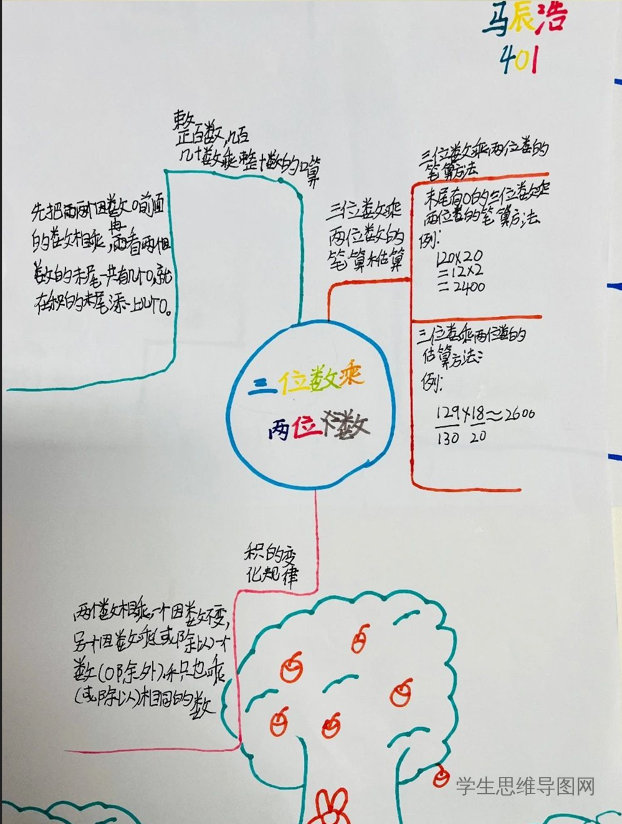 马辰浩
401
整百数,几百
几十数乘整十数的口算
先把两个因数0前面
的数相乘,再看两个因
数的末尾一共有几个0,就
在积的末尾添上几个0。
三位数乘
两位数的
笔算和估算
三位数乘两位数的
笔算方法
末尾有0的三位数乘
两位数的笔算方法
例:
120×20
=12×2
=2400
三位数乘两位数的
估算方法:
例:
129×18≈2600
130 20
三位数乘
两位数
积的变
化规律
两个数相乘,一个因数不变,
另一个因数乘(或除以)一个
数(0除外),积也乘
(或除以)相同的数
学生思维导图网